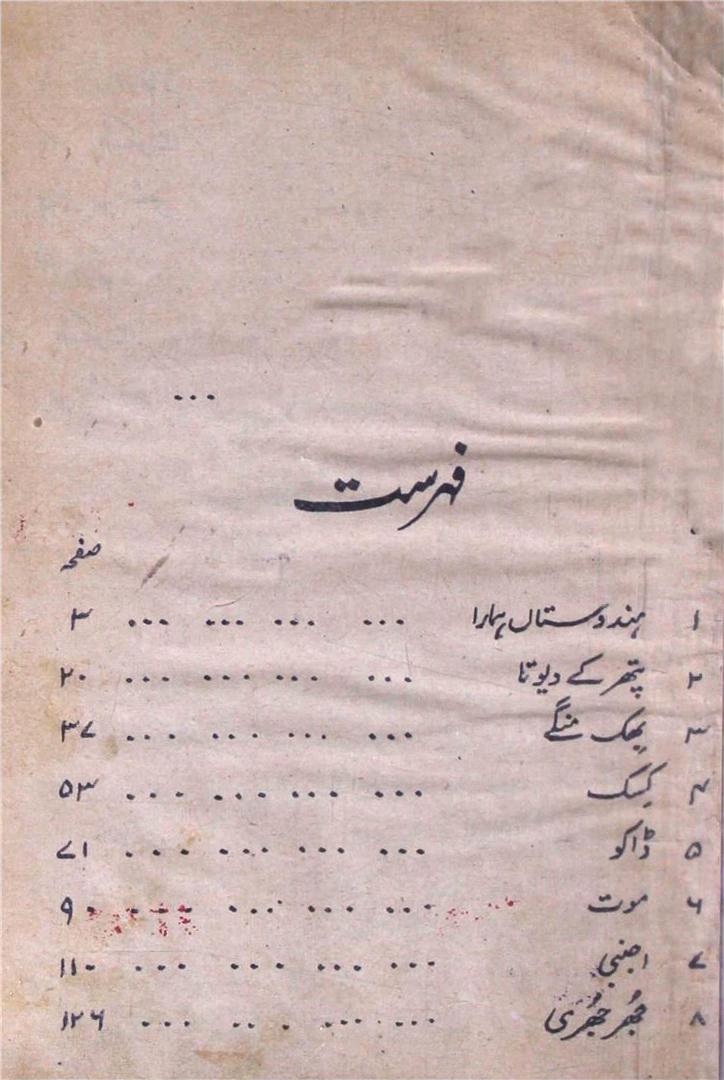 ...
فہرست
صفحہ
۱ ہندوستاں ہمارا ... ... ... ... ۳
۲ پتھر کے دیوتا ... ... ... ... ۲۰
۳ بھک منگے ... ... ... ... ۳۷
۴ کسک ... ... ... ... ۵۳
۵ ڈاکو ... ... ... ... ۷۱
۶ موت ... ... ... ... ۹۰
۷ اجنبی ... ... ... ... ۱۱۰
۸ جُھرجُھری ... ... ... ... ۱۲۶